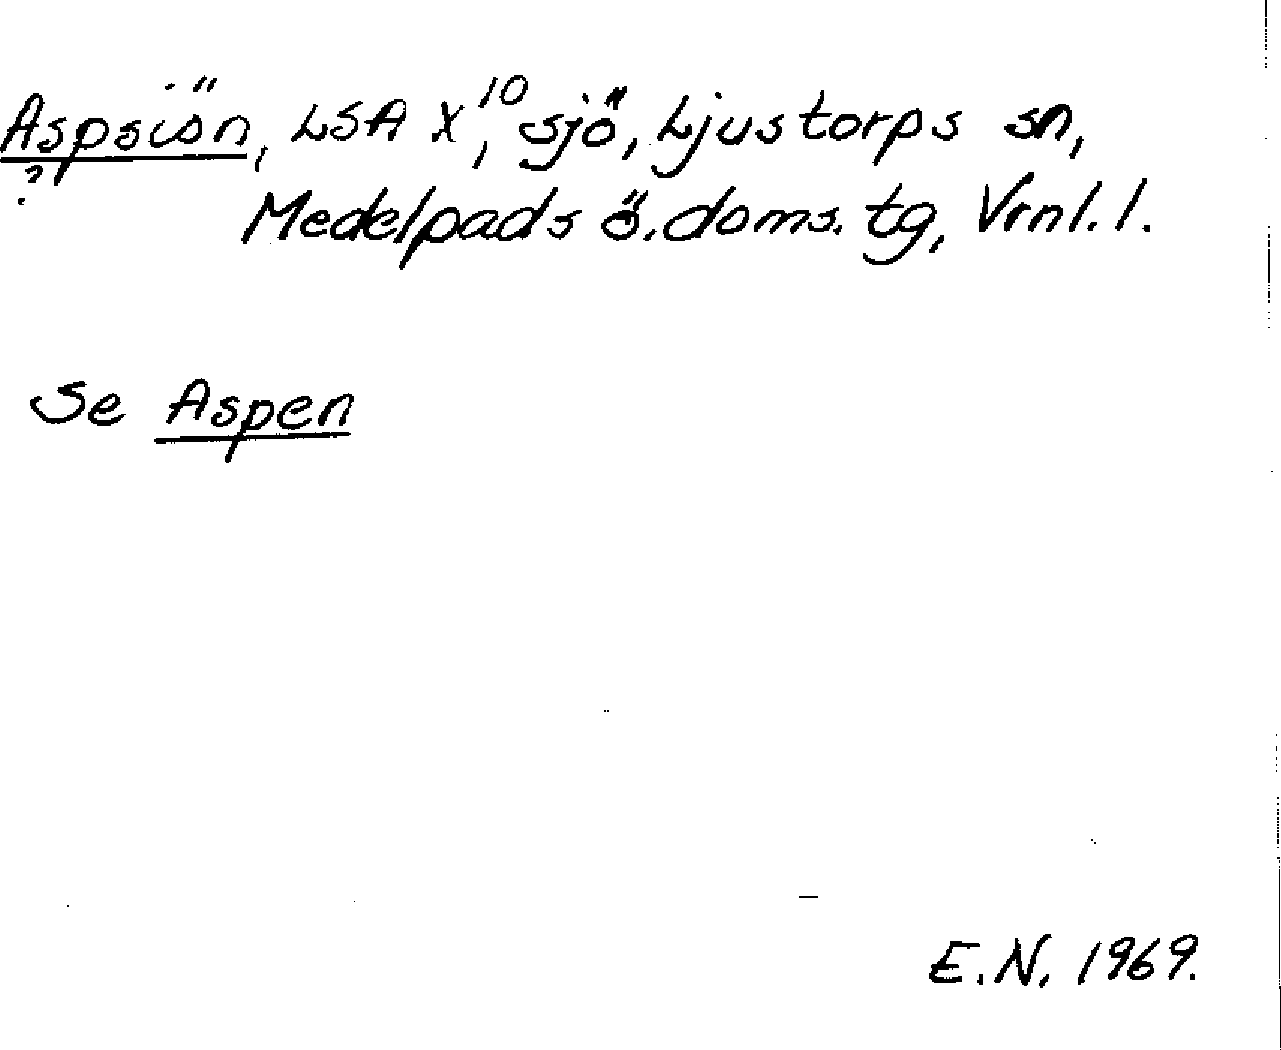 Aspsiön, LSA X, 10 sjö, Ljustorps sn,
?
Medelpads ö. doms. tg, Vrnl. l.
Se Aspen
E.N. 1969.